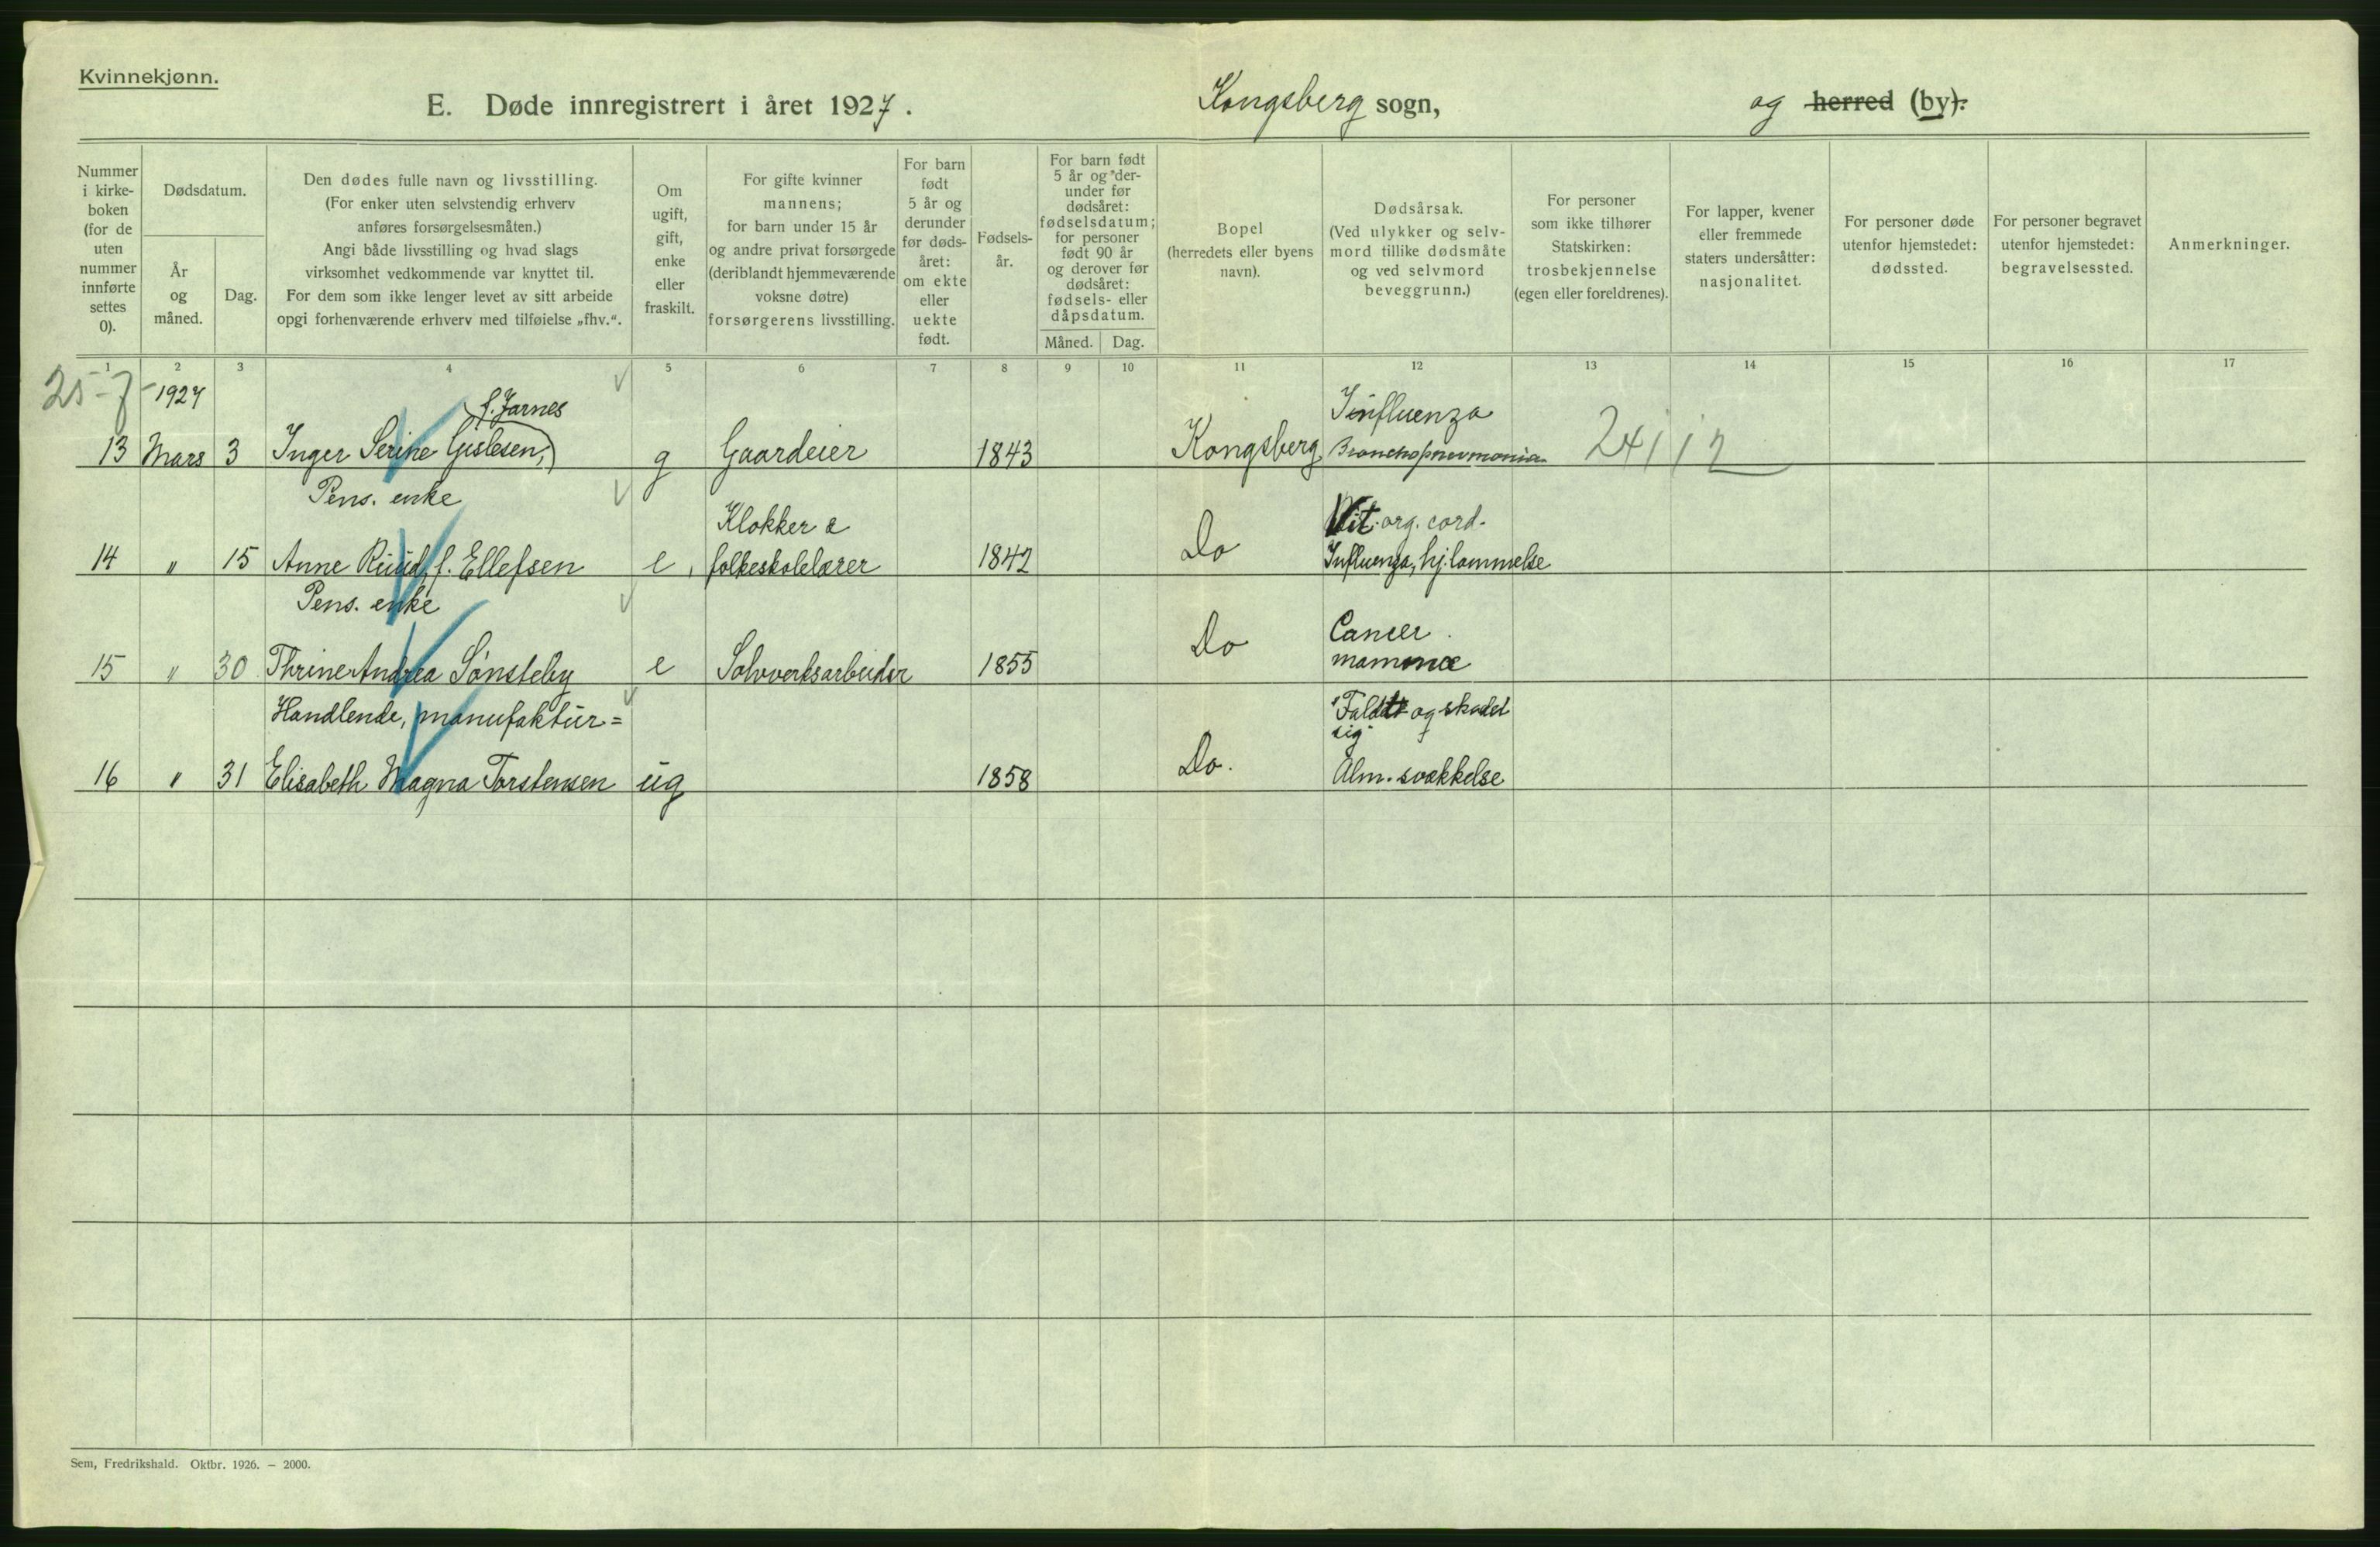 Kvinnekjønn.
E. Døde innregistrert i året 1927. Kongsberg sogn, og herred (by).
Nummer i kirke-boken (for de uten nummer innførte settes 0).
Dødsdatum.
År og måned.
Dag.
Den dødes fulle navn og livsstilling.
(For enker uten selvstendig erhverv
anføres forsørgelsesmåten.)
Angi både livsstilling og hvad slags
virksomhet vedkommende var knyttet til.
For dem som ikke lenger levet av sitt arbeide
opgi forhenværende erhverv med tilføielse „fhv.“.
Om
ugift,
gift,
enke
eller
fraskilt.
For gifte kvinner
mannens;
for barn under 15 år
og andre privat forsørgede
(deriblandt hjemmeværende
voksne døtre)
forsørgerens livsstilling.
For barn
født
5 år og
derunder
før døds-
året:
om ekte
eller
uekte
født.
Fødsels-
år.
For barn født
5 år og der-
under før
dødsåret:
fødselsdatum;
for personer
født 90 år
og derover før
dødsåret:
fødsels- eller
dåpsdatum.
Måned. Dag.
Bopel
(herredets eller byens
navn).
Dødsårsak.
(Ved ulykker og selv-
mord tillike dødsmåte
og ved selvmord
beveggrunn.)
For personer
som ikke tilhører
Statskirken:
trosbekjennelse
(egen eller foreldrenes).
For lapper, kvener
eller fremmede
staters undersåtter:
nasjonalitet.
For personer døde
utenfor hjemstedet:
dødssted.
For personer begravet
utenfor hjemstedet:
begravelsessted.
Anmerkninger.
1 2 3 4 5 6 7 8 9 10 11 12 13 14 15 16 17
25-7-1927
f. Jarnes
Influenza
13 Mars 3 Inger Serine Gislesen, g Gaardeier 1843 Kongsberg Bronchopnevmonia 24/12
Pens. enke Klokker & Vit. org. cord.
14 " 15 Anne Ruud, f. Ellefsen e, folkeskolelærer 1842 Do Influenza, hj.lammelse
Pens. enke Cancer
15 " 30 Thrine Andrea Sønsteby e Sølvverksarbeider 1855 Do mammæ
Handlende, manufaktur= Faldt og skadet
sig
16 " 31 Elisabeth Magna Torstensen ug 1858 Do. Alm. svækkelse
Sem, Fredrikshald. Oktbr. 1926. — 2000.